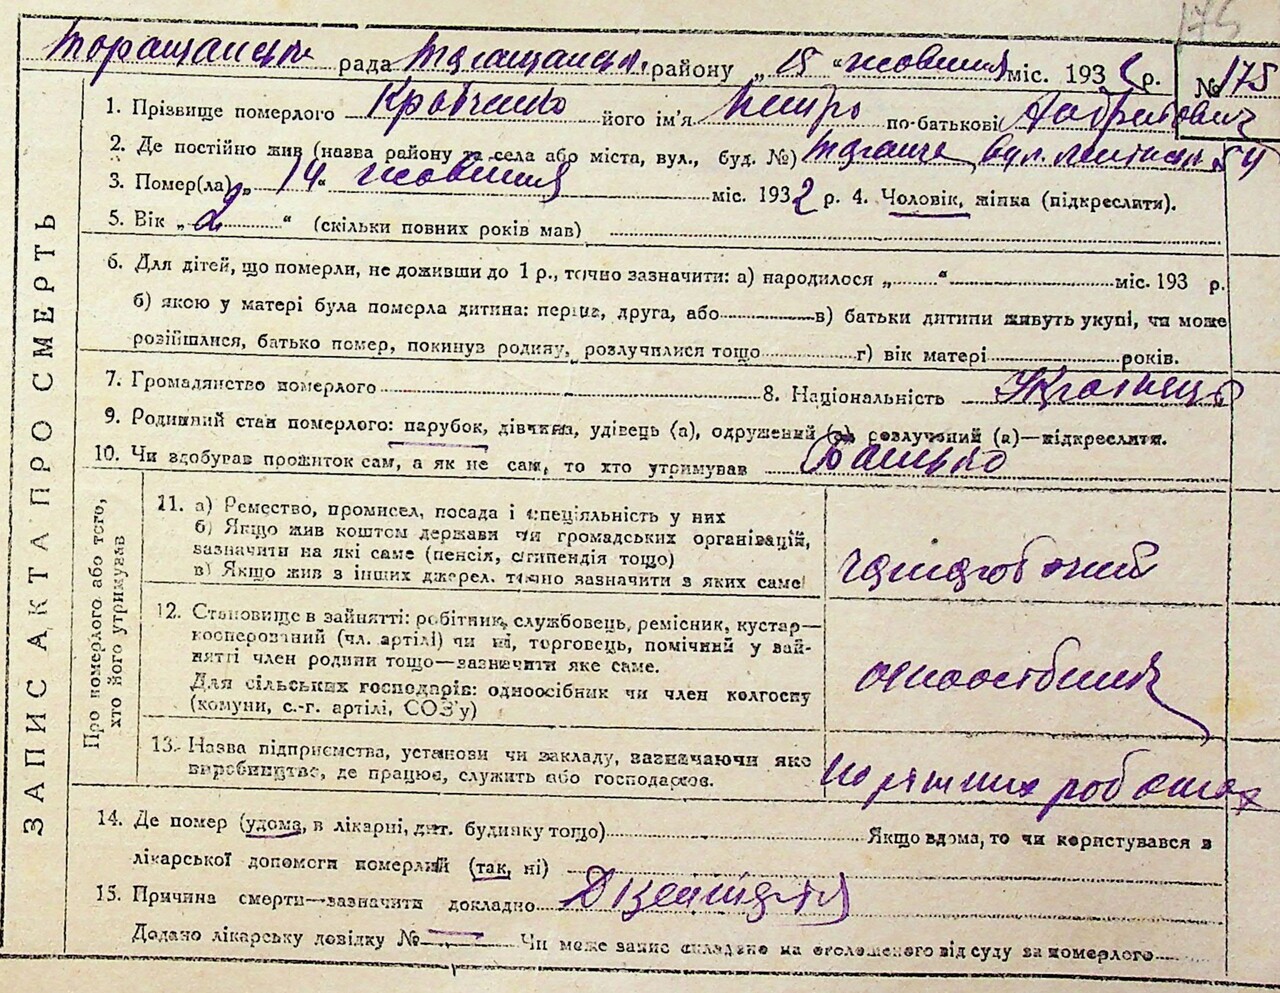 175
рада району „ 15 “ жовтня міс. 193 р. № 175
1. Прізвище померлого Кравченко його ім'я Петро по-батькові
2. Де постійно жив (назва району та села або міста, вул., буд. №) вул. 54
3. Помер(ла) „ 14 “ жовтня міс. 1932 р. 4. Чоловік, жінка (підкреслити).
5. Вік „ 2 “ (скільки повних років мав)
6. Для дітей, що померли, не доживши до 1 р., точно зазначити: а) народилося „ “ міс. 193 р.
б) якою у матері була померла дитина: перша, друга, або в) батьки дитини живуть укупі, чи може
розійшлися, батько помер, покинув родину, розлучилися тощо г) вік матері років.
7. Громадянство померлого 8. Національність Українець
9. Родинний стан померлого: парубок, дівчина, удівець (а), одружений (а), розлучений (а)—підкреслити.
10. Чи здобував прожиток сам, а як не сам, то хто утримував Батько
ЗАПИС АКТА ПРО СМЕРТЬ
Про померлого або того,
хто його утримував
11. а) Ремество, промисел, посада і спеціяльність у них
б) Якщо жив коштом держави чи громадських організацій,
зазначити на які саме (пенсія, стипендія тощо)
в) Якщо жив з інших джерел, точно зазначити з яких саме
12. Становище в зайнятті: робітник, службовець, ремісник, кустар—
кооперований (чл. артілі) чи ні, торговець, помічний у зай-
нятті член родини тощо—зазначити яке саме.
Для сільських господарів: одноосібник чи член колгоспу
(комуни, с.-г. артілі, СОЗ'у)
одноосібник
13. Назва підприємства, установи чи закладу, зазначаючи яке
виробництво, де працює, служить або господарює.
по різних роботах
14. Де помер (удома, в лікарні, дит. будинку тощо) Якщо вдома, то чи користувався з
лікарської допомоги померлий (так, ні)
15. Причина смерти—зазначити докладно Дизентерія
Додано лікарську довідку № — Чи може запис складено на оголошеного від суду за померлого